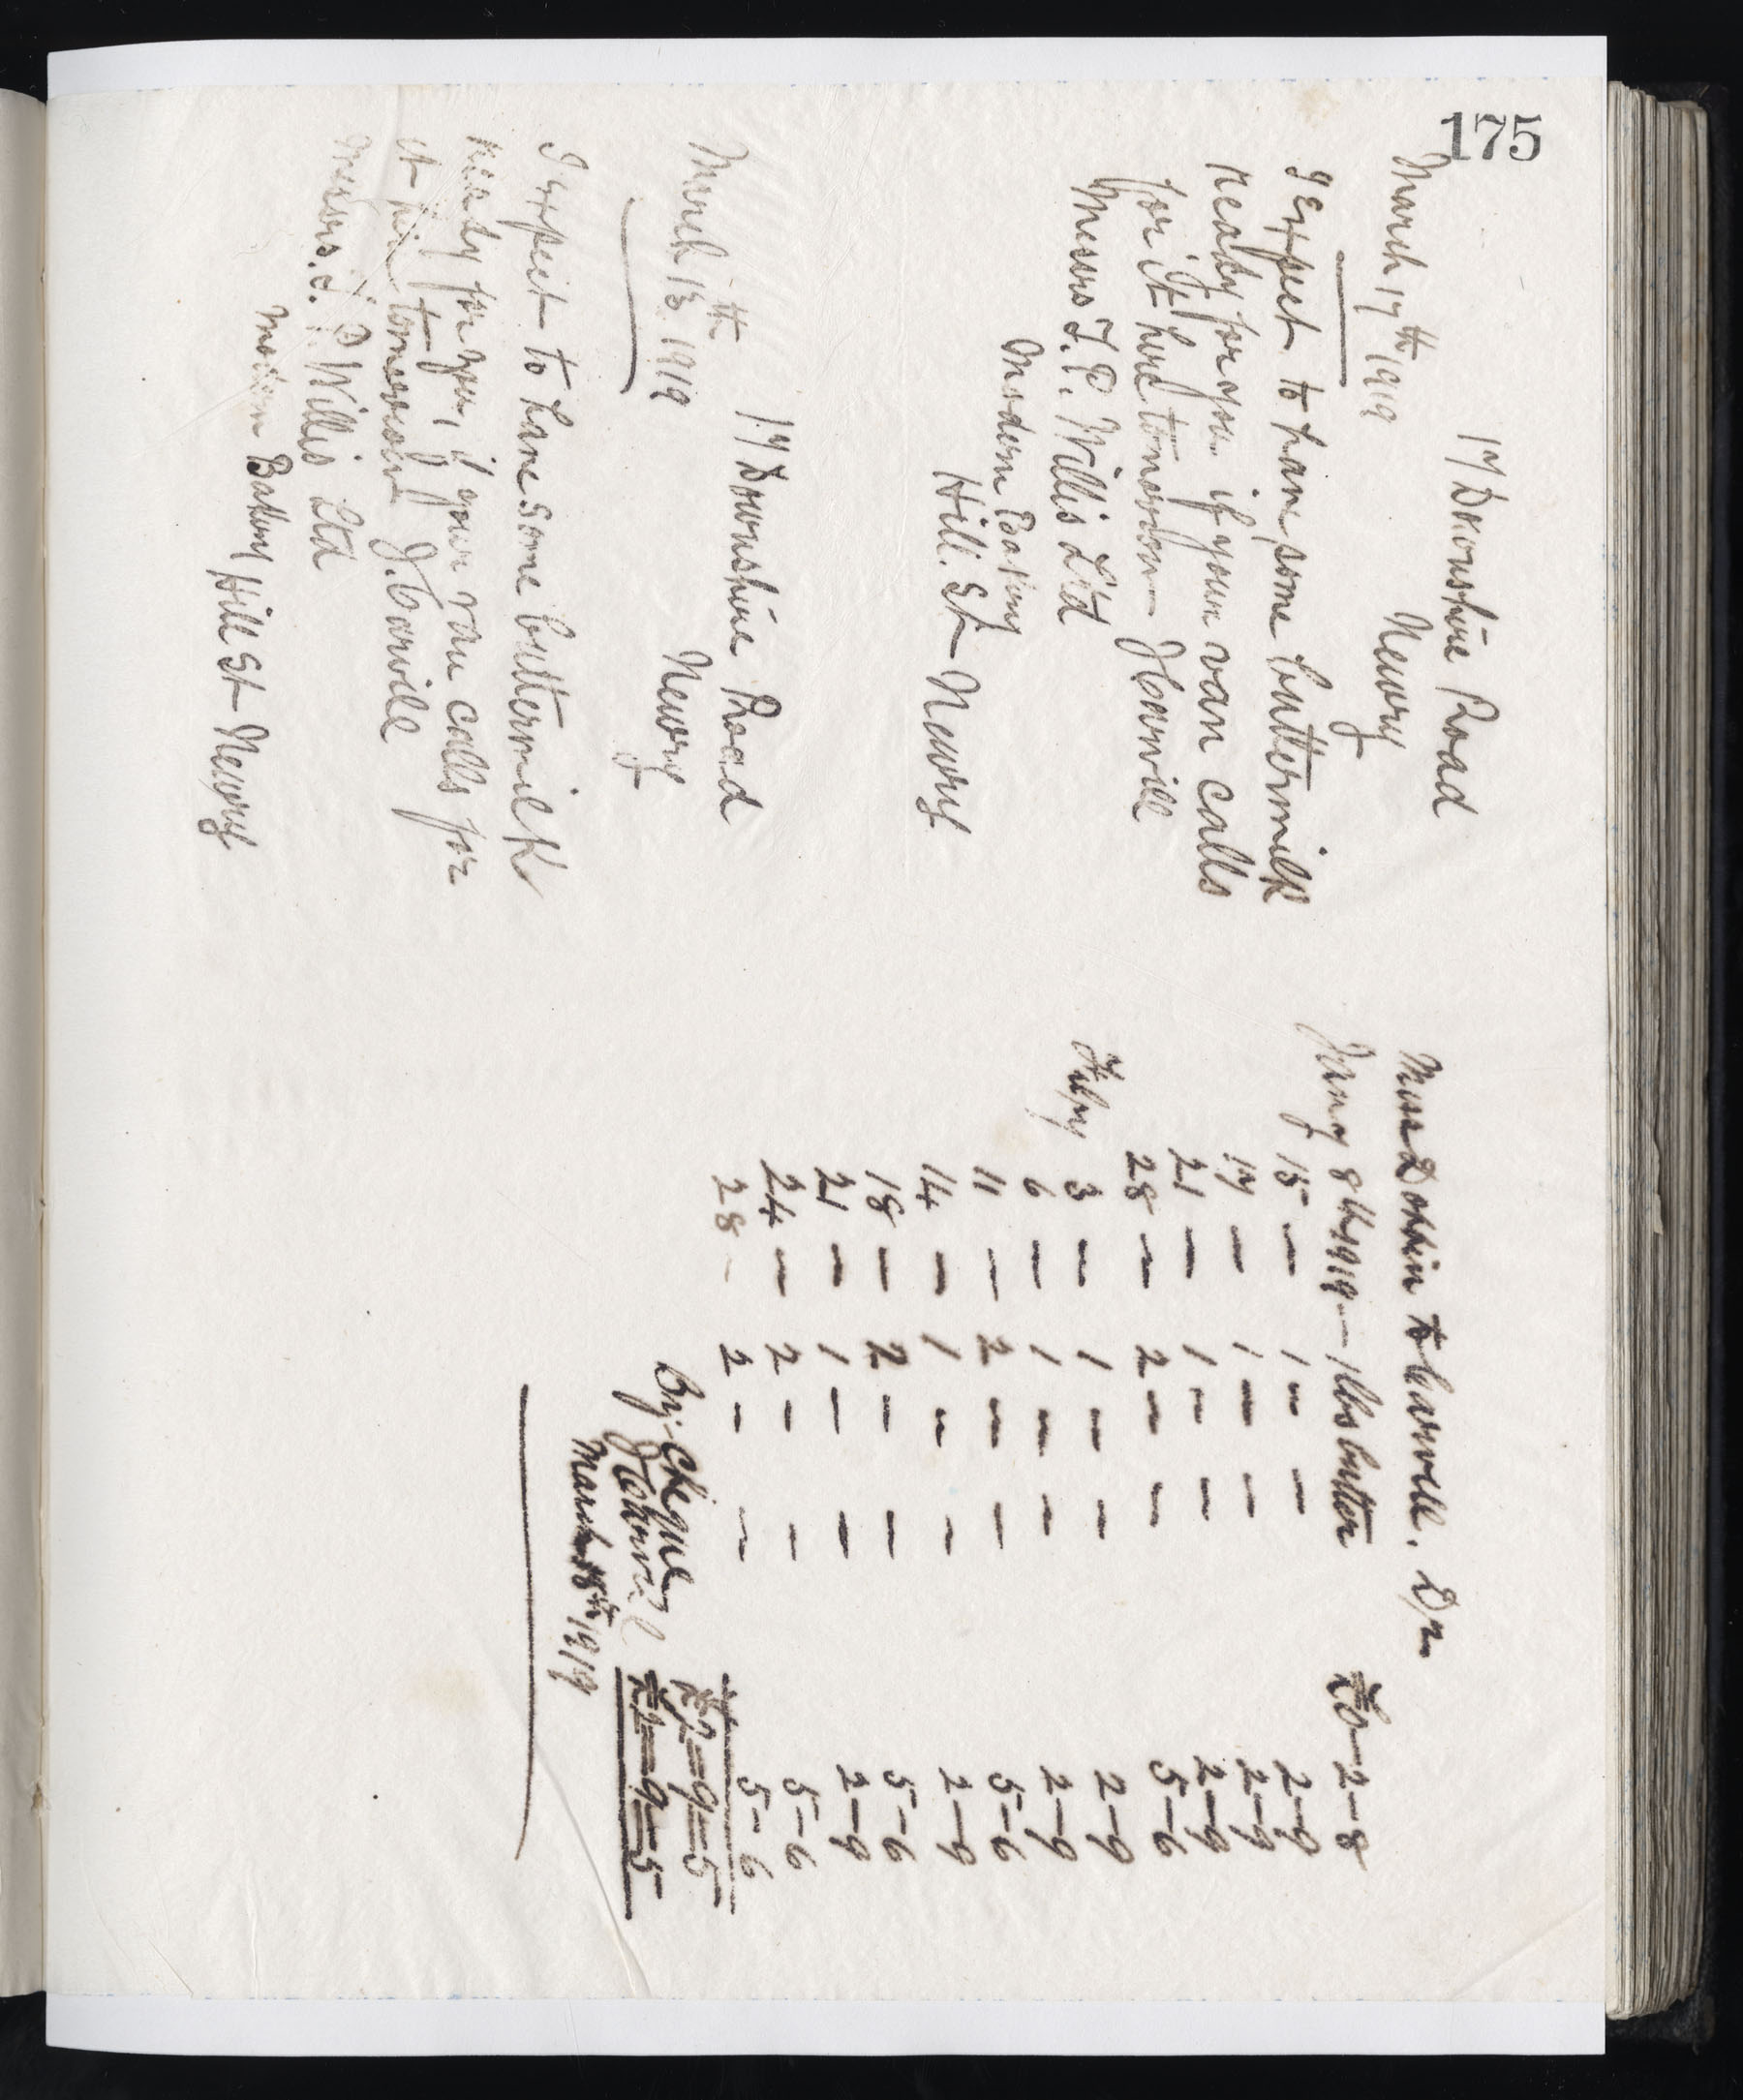 175
17 Downshire Road
Newry
March 17th 1919
I expect to have some buttermilk
ready for you if your van calls
for it here tomorrow J Carvill
Messrs T. P. Willis Ltd
Modern Bakery
Hill. St Newry
17 Downshire Road
Newry
March 13th 1919
I expect to have some buttermilk
ready for you, if your van calls for
it here tomorrow J. Carvill
Messrs. T. P. Willis Ltd
Modern Bakery Hill St Newry
Miss to Carvill. Dr.
Jany 8th 1919 — 1 lbs butter £0—2—8
15 — 1 — — 2—9
17 — 1 — — 2—9
21 — 1 — — 2—9
28 — 2 — — 5—6
Feby 3 — 1 — — 2—9
6 — 1 — — 2—9
11 — 2 — — 5—6
14 — 1 — — 2—9
18 — 2 — — 5—6
21 — 1 — — 2—9
24 — 2 — — 5—6
28 — 2 — — 5—6
£2—9—5
By Cheque £2—9—5
J Carvill
March 18th 1919